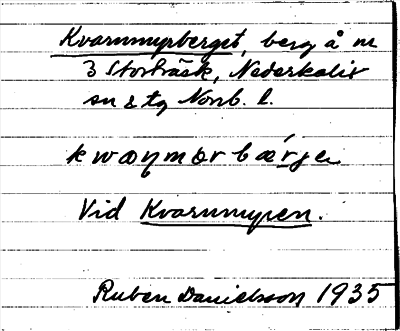 Kvarnmyrberget, berg å nr
3 Storträsk, Nederkalix
sn & tg Norrb. l.
kwaṇmørbæ´rje
Vid Kvarnmyren.
Ruben Danielsson 1935